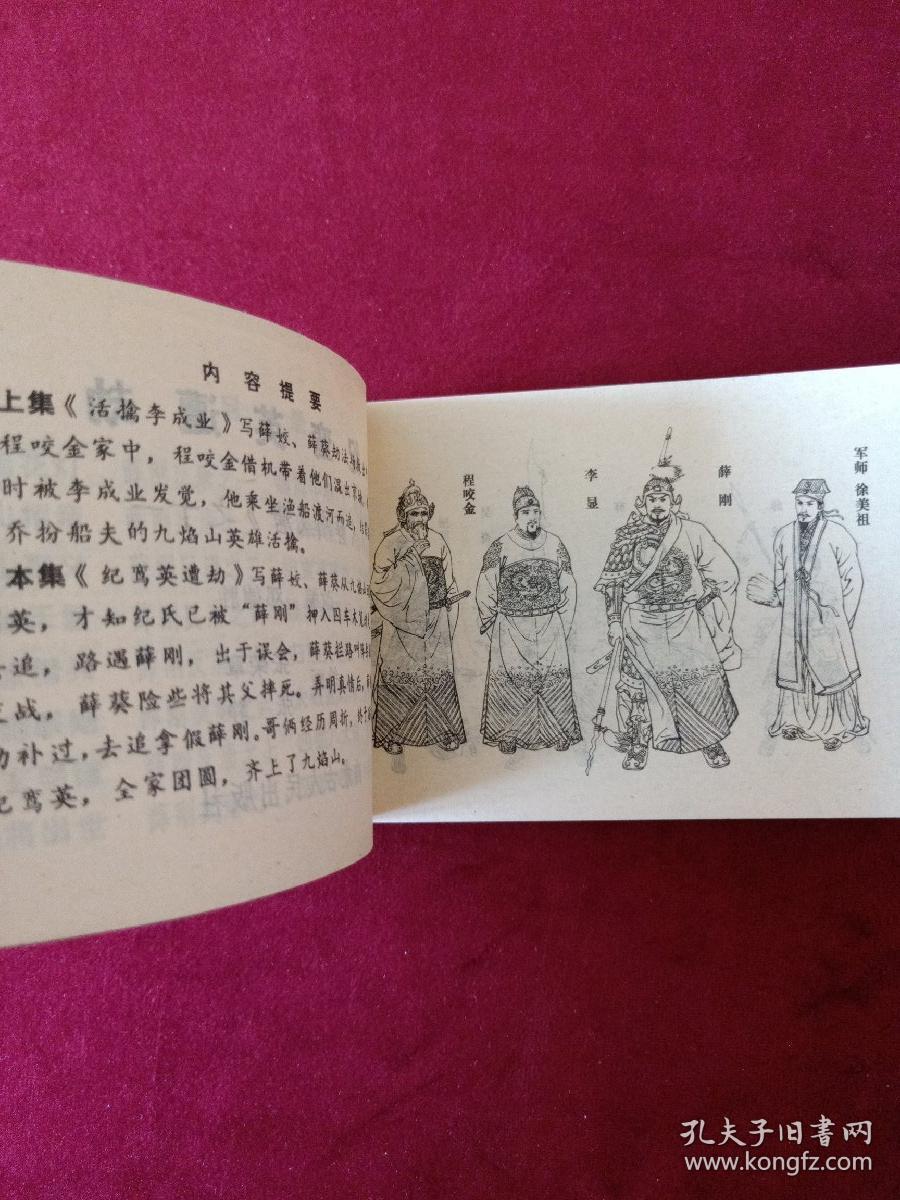 内容提要
上集《活擒李成业》写薛姣、薛葵劫法场
程咬金家中，程咬金借机带着他们混出京
时被李成业发觉，他乘坐渔船渡河而追，
乔扮船夫的九焰山英雄活擒。
本集《纪鸾英遭劫》写薛姣、薛葵从九焰山
英，才知纪氏已被“薛刚”押入囚车
追，路遇薛刚，出于误会，薛葵拦路
战，薛葵险些将其父摔死。弄明真情后，
功补过，去追拿假薛刚。哥俩经历周折，终于
纪鸾英，全家团圆，齐上了九焰山。
程咬金
李显
薛刚
军师 徐美祖
孔夫子旧书网
www.kongfz.com